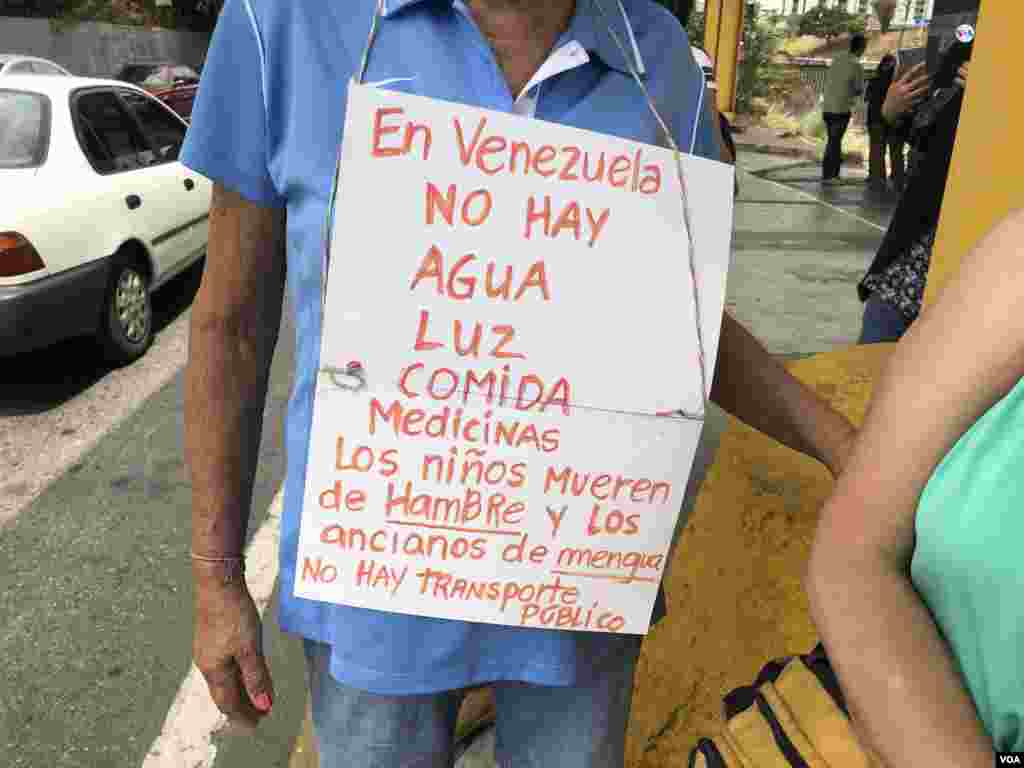 En Venezuela
NO HAY
AGUA
LUZ
COMIDA
Medicinas
Los niños mueren
de HamBRe y los
ancianos de mengua
NO HAY TRANSPORTE
PÚBLICO
VOA